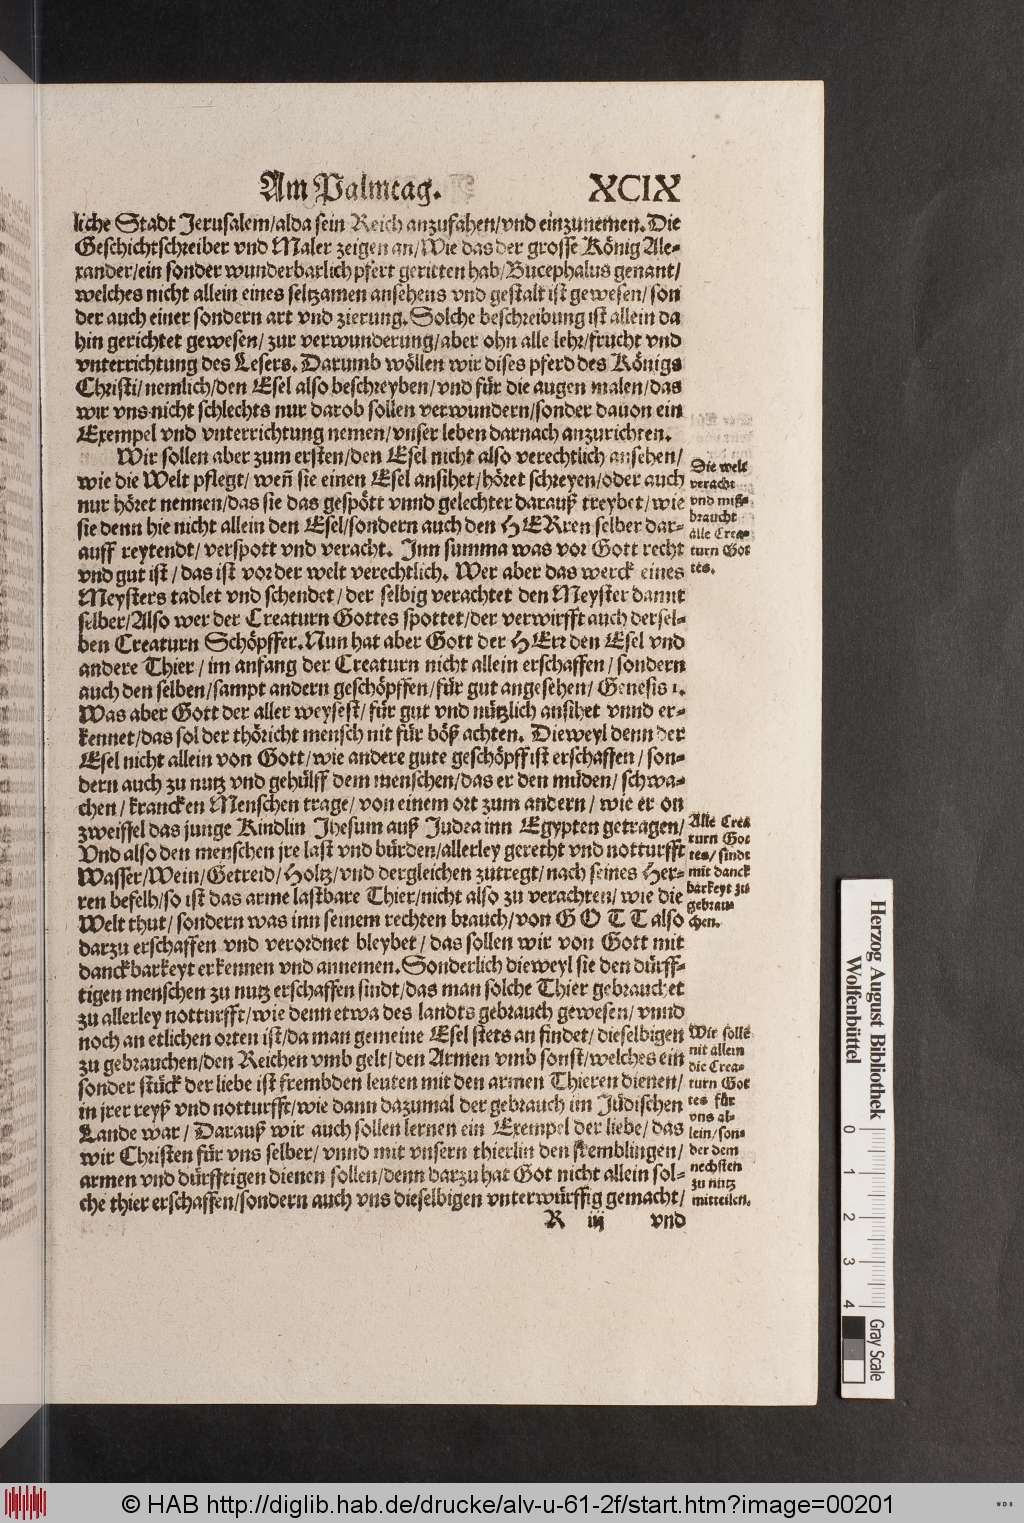 Am Palmtag. XCIX
liche Stadt Jerusalem/alda sein Reich anzufahen/vnd einzunemen. Die
Geschichtschreiber vnd Maler zeigen an/Wie das der grosse König Ale-
xander/ein sonder wunderbarlich pfert geritten hab/Bucephalus genant/
welches nicht allein eines seltzamen ansehens vnd gestalt ist gewesen/son
der auch einer sondern art vnd zierung. Solche beschreibung ist allein da
hin gerichtet gewesen/ zur verwunderung/aber ohn alle lehr/frucht vnd
vnterrichtung des Lesers. Darumb wöllen wir dises pferd des Königs
Christi/nemlich/den Esel also beschreyben/vnd für die augen malen/das
wir vns nicht schlechts nur darob sollen verwundern/sonder dauon ein
Exempel vnd vnterrichtung nemen/vnser leben darnach anzurichten.
Wir sollen aber zum ersten/den Esel nicht also verechtlich ansehen/
wie die Welt pflegt/ weñ sie einen Esel ansihet/höret schreyen/oder auch
nur höret nennen/das sie das gespött vnnd gelechter darauß treybet/wie
sie denn hie nicht allein den Esel/sondern auch den HERren selber dar-
auff reytendt/ verspott vnd veracht. Inn summa was vor Gott recht
vnd gut ist/das ist vor der welt verechtlich. Wer aber das werck eines
Meysters tadlet vnd schendet/ der selbig verachtet den Meyster damit
selber/Also wer der Creaturn Gottes spottet/der verwirfft auch dersel-
ben Creaturn Schöpffer. Nun hat aber Gott der HErr den Esel vnd
andere Thier/ im anfang der Creaturn nicht allein erschaffen/ sondern
auch den selben/sampt andern geschöpffen/für gut angesehen/ Genesis 1.
Was aber Gott der aller weysest/ für gut vnd nützlich ansihet vnnd er-
kennet/das sol der thöricht mensch nit für böß achten. Dieweyl denn der
Esel nicht allein von Gott/wie andere gute geschöpff ist erschaffen/ son-
dern auch zu nutz vnd gehülff dem menschen/das er den müden/ schwa-
chen/ krancken Menschen trage/ von einem ort zum andern/ wie er on
zweiffel das junge Kindlin Jhesum auß Judea inn Egypten getragen/
Vnd also den menschen jre last vnd bürden/allerley gereth vnd notturfft
Wasser/Wein/Getreid/Holtz/vnd dergleichen zutregt/nach seines Her-
ren befelh/so ist das arme lastbare Thier/nicht also zu verachten/ wie die
Welt thut/ sondern was inn seinem rechten brauch/von GOTT also
darzu erschaffen vnd verordnet bleybet/ das sollen wir von Gott mit
danckbarkeyt erkennen vnd annemen. Sonderlich dieweyl sie den dürff-
tigen menschen zu nutz erschaffen sindt/das man solche Thier gebrauchet
zu allerley notturfft/wie denn etwa des landts gebrauch gewesen/ vnnd
noch an etlichen orten ist/da man gemeine Esel stets an findet/dieselbigen
zu gebrauchen/den Reichen vmb gelt/den Armen vmb sonst/welches ein
sonder stück der liebe ist frembden leuten mit den armen Thieren dienen/
in jrer reyß vnd notturfft/wie dann dazumal der gebrauch im Jüdischen
Lande war/ Darauß wir auch sollen lernen ein Exempel der liebe/das
wir Christen für vns selber/ vnnd mit vnsern thierlin den fremblingen/
armen vnd dürfftigen dienen sollen/denn darzu hat Got nicht allein sol-
che thier erschaffen/sondern auch vns dieselbigen vnterwürffig gemacht/
R iij vnd
Die welt
veracht
vnd miß-
braucht
alle Crea-
turn Got
tes.
Alle Crea
turn Got
tes/ sindt
mit danck
barkeyt zu
gebrau-
chen.
Wir solle
nit allein
die Crea-
turn Got
tes für
vns al-
lein/son-
der dem
nechsten
zu nutz
mitteilen.
Herzog August Bibliothek
Wolfenbüttel
0 1 2 3 4
Gray Scale
© HAB http://diglib.hab.de/drucke/alv-u-61-2f/start.htm?image=00201
WDB